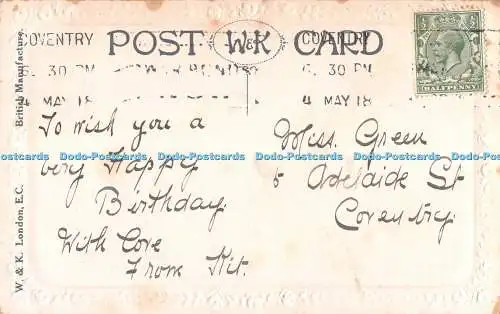 COVENTRY
POST W&K CARD
COVENTRY
30 PM
6. 30 PM
4 MAY 18
4 MAY 18
HALFPENNY
To wish you a
very Happy
Birthday.
With Love
From Kit.
Miss. Green
5 Adelaide St
Coventry.
W. & K. London, E.C. British Manufacture.
Dodo-Postcards Dodo-Postcards Dodo-Postcards Dodo-Postcards Dodo-Postcards